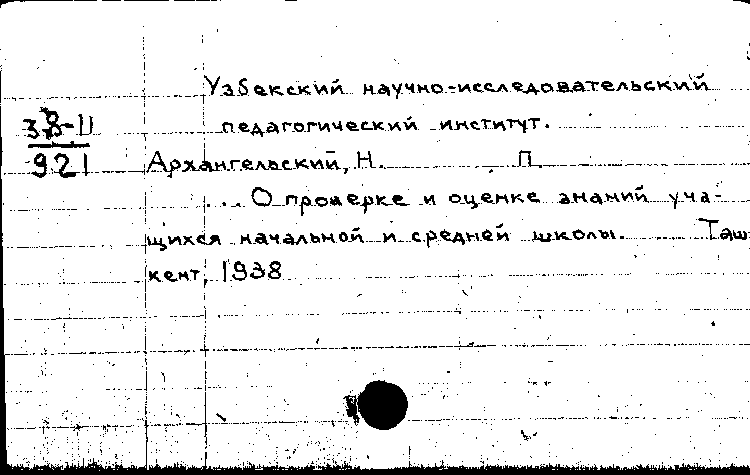 Узбекский научно-исследовательский
38-11
педагогический институт.
921
Архангельский, Н. П.
... О проверке и оценке знаний уча-
щихся начальной и средней школы. Таш
кент, 1938